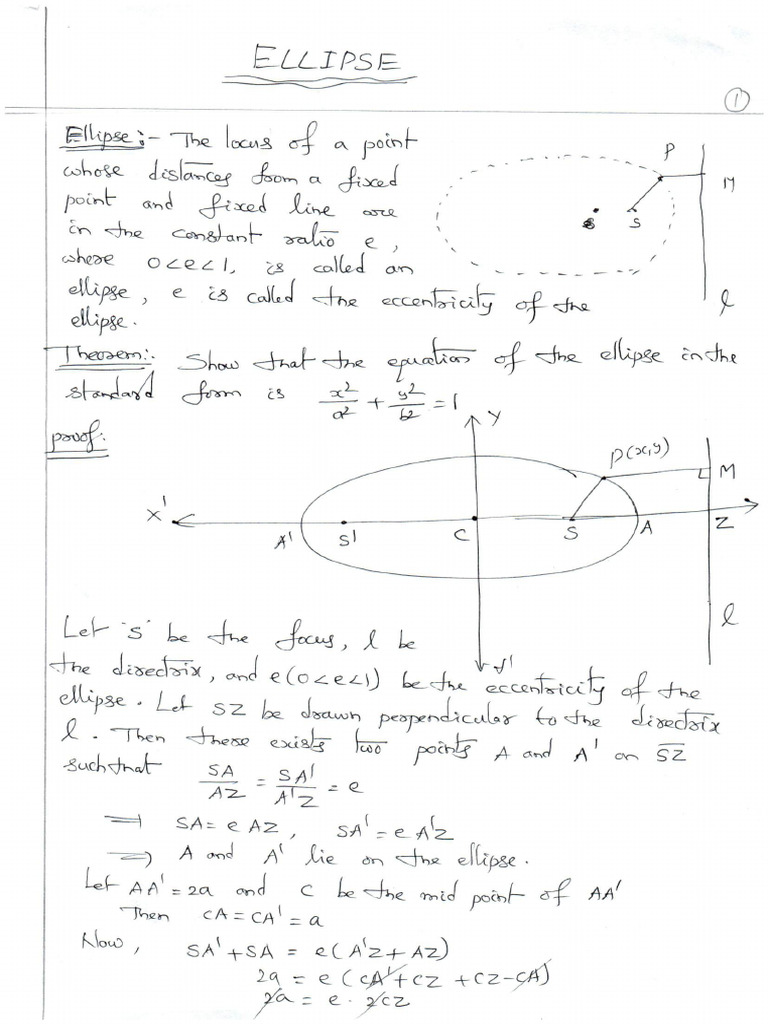 ELLIPSE
1
Ellipse:- The locus of a point
whose distances from a fixed
point and fixed line are
in the constant ratio e,
where 0<e<1, is called an
ellipse, e is called the eccentricity of the
ellipse.
P
M
S
l
Theorem:- Show that the equation of the ellipse in the
standard form is x²/a² + y²/b² = 1
proof:
Y
P(x,y)
M
X' A' S' C S A Z
l
y'
Let 'S' be the focus, l be
the directrix, and e(0<e<1) be the eccentricity of the
ellipse. Let SZ be drawn perpendicular to the directrix
l. Then there exists two points A and A' on SZ
such that SA/AZ = SA'/A'Z = e
⇒ SA = e AZ, SA' = e A'Z
⇒ A and A' lie on the ellipse.
Let AA' = 2a and C be the mid point of AA'
Then CA = CA' = a
Now, SA' + SA = e(A'Z + AZ)
2a = e(CA' + CZ + CZ - CA)
2a = e. 2CZ